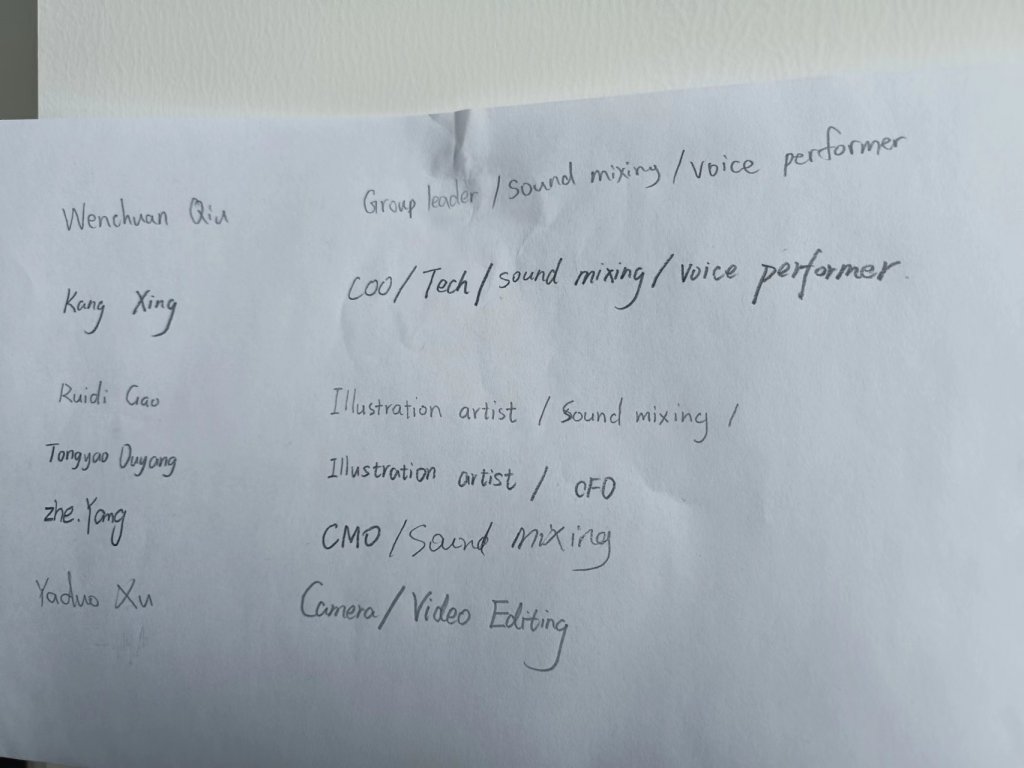 Wenchuan Qiu Group leader / Sound mixing / voice performer
Kang Xing COO / Tech / sound mixing / voice performer.
Ruidi Gao Illustration artist / Sound mixing /
Tongyao Ouyang Illustration artist / CFO
zhe.Yang CMO / Sound mixing
Yaduo Xu Camera / Video Editing